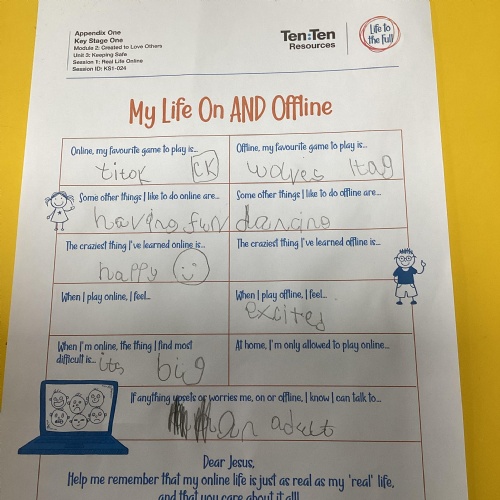 Appendix One
Key Stage One
Module 2: Created to Love Others
Unit 3: Keeping Safe
Session 1: Real Life Online
Session ID: KS1-024
Ten:Ten
Resources
Life to
the Full
My Life On AND Offline
Online, my favourite game to play is...
titok CK
Offline, my favourite game to play is...
wolves Itag
Some other things I like to do online are...
having fun
Some other things I like to do offline are...
dancing
The craziest thing I've learned online is...
happy
The craziest thing I've learned offline is...
When I play online, I feel...
When I play offline, I feel...
excites
When I'm online, the thing I find most
difficult is... its big
At home, I'm only allowed to play online...
If anything upsets or worries me, on or offline, I know I can talk to...
an adult
Dear Jesus,
Help me remember that my online life is just as real as my 'real' life,
and that you care about it all!